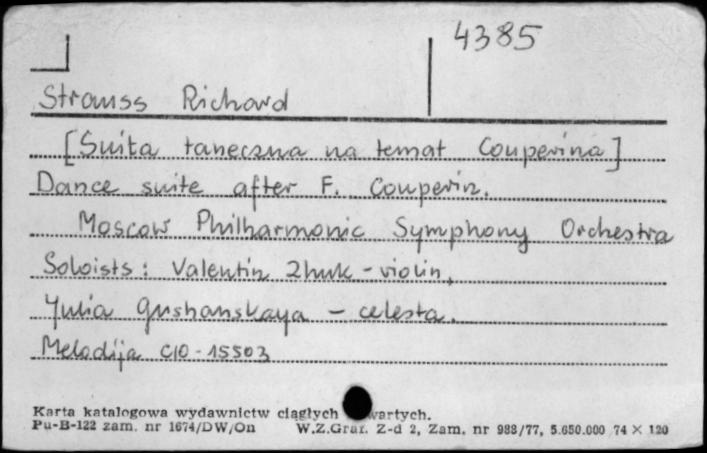 4385
Strauss Richard
[Suita taneczna na temat Couperina]
Dance suite after F. Couperin.
Moscow Philharmonic Symphony Orchestra
Soloists: Valentin Zhuk - violin,
Yulia Gushanskaya - celesta.
Melodija C10-15503
Karta katalogowa wydawnictw ciągłych wartych.
Pu-B-122 zam. nr 1674/DW/On W.Z.Graf. Z-d 2, Zam. nr 988/77, 5.650.000 74 × 120